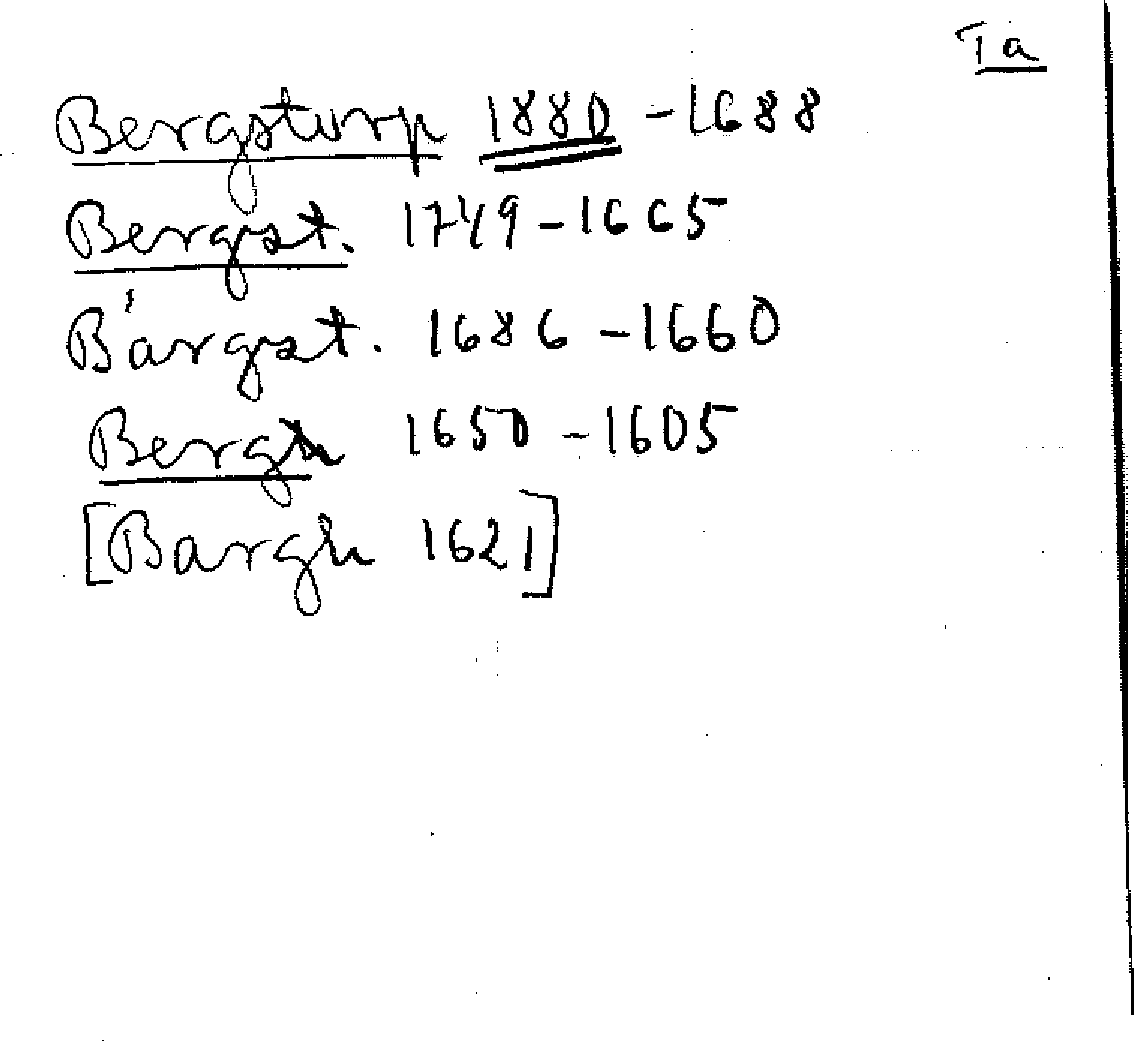 Ta
Bergstorp 1880 - 1688
Bergst. 1749 - 1665
Bärgst. 1686 - 1660
Bergh 1650 - 1605
[Bargh 1621]